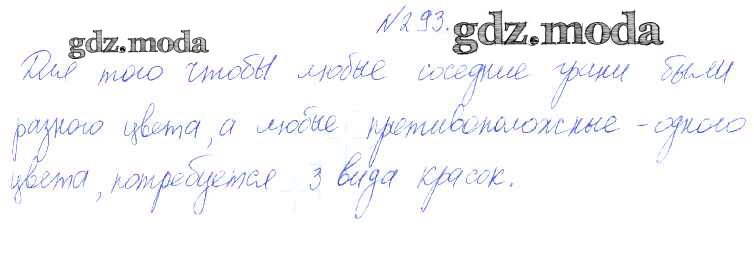 №293.
gdz.moda gdz.moda
Для того чтобы любые соседние грани были
разного цвета, а любые противоположные - одного
цвета, потребуется 3 вида красок.